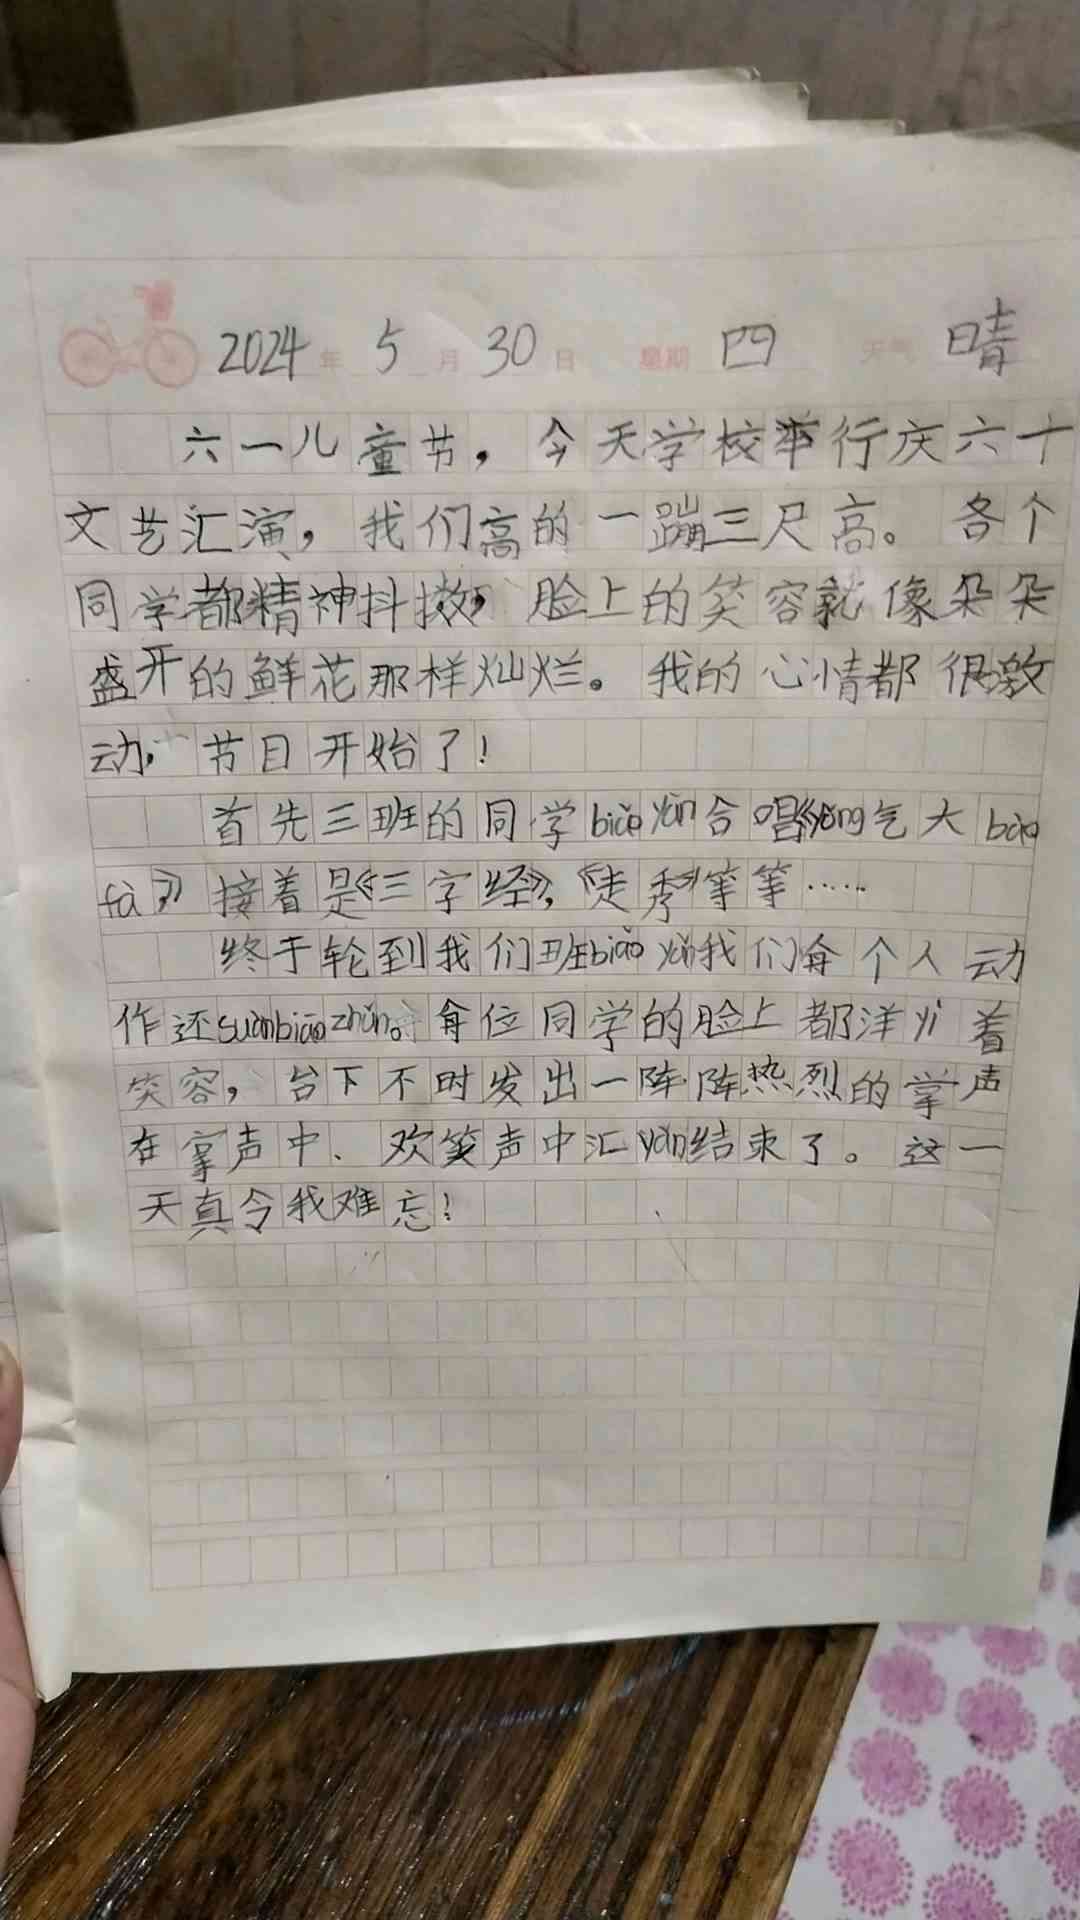 2024年 5月 30日 星期 四 天气 晴
六一儿童节，今天学校举行庆六十
文艺汇演，我们高的一蹦三尺高。各个
同学都精神抖擞，脸上的笑容就像朵朵
盛开的鲜花那样灿烂。我的心情都很激
动，节目开始了！
首先三班的同学biǎoyǎn合唱《yǒng气大bào
fā》接着是《三字经》，《走秀》等等……
终于轮到我们班biǎo yǎn我们每个人动
作还suànbiāozhǔn。每位同学的脸上都洋yì着
笑容，台下不时发出一阵阵热烈的掌声
在掌声中、欢笑声中汇yǎn结束了。这一
天真令我难忘！